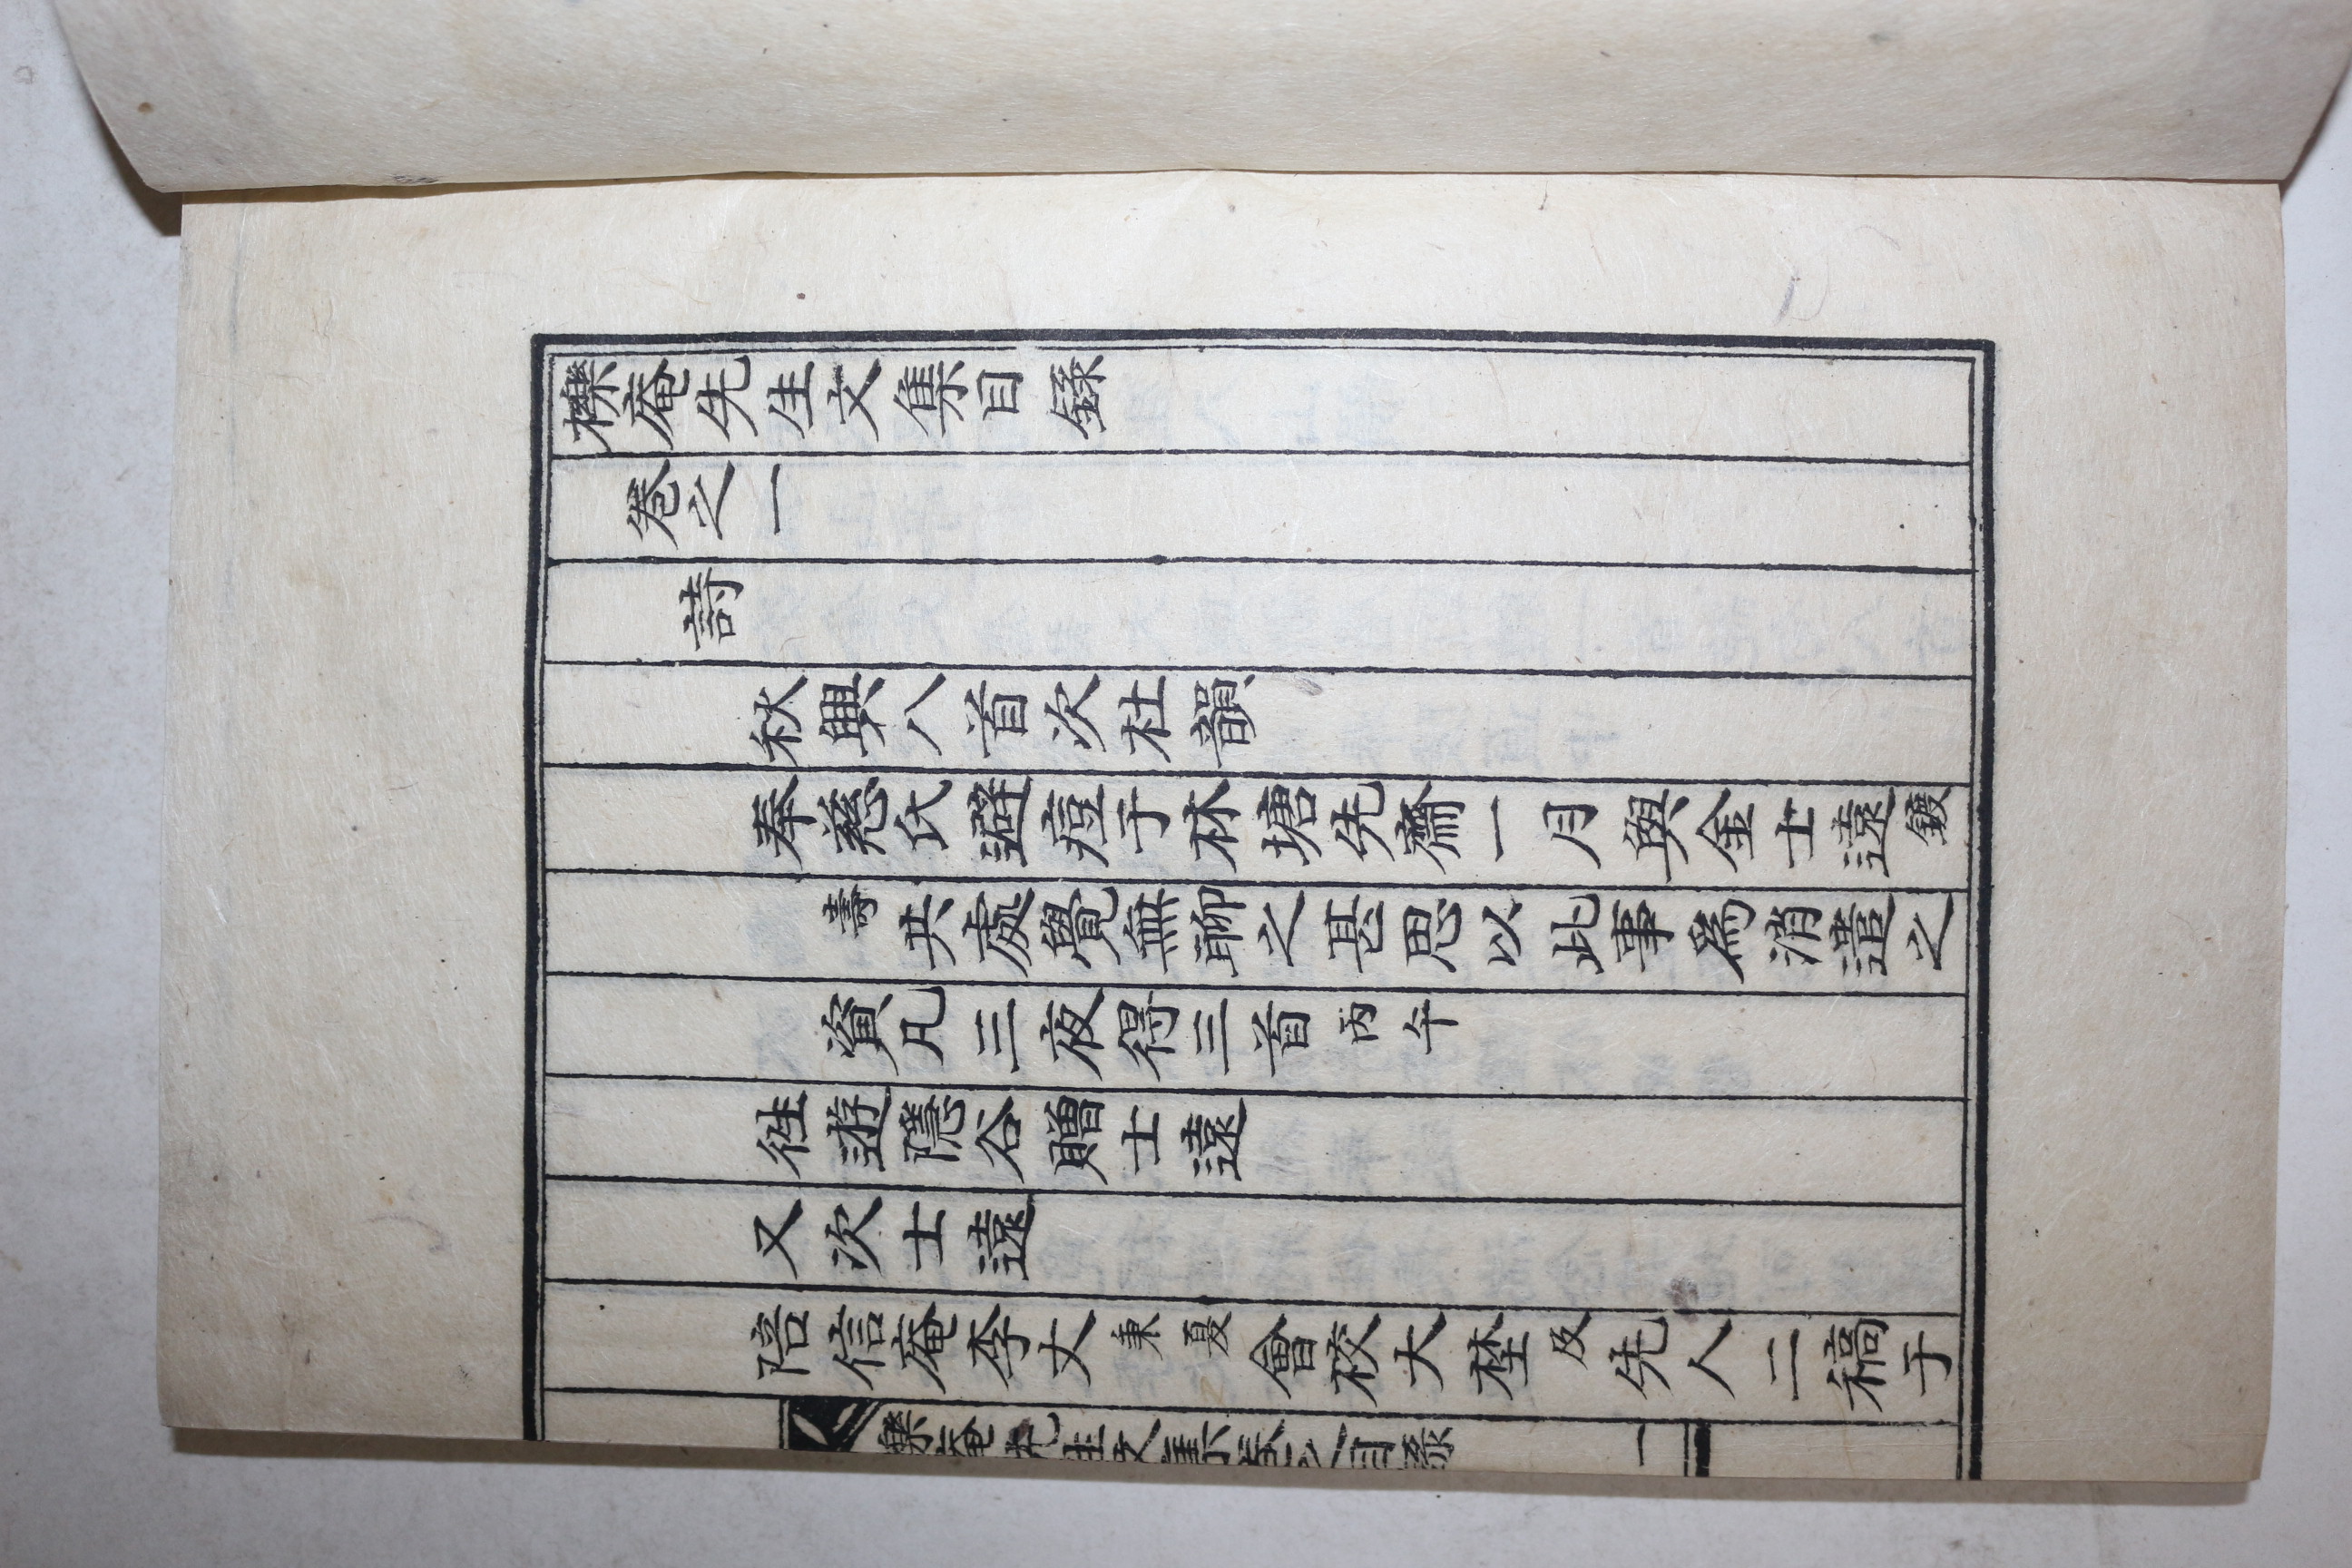 櫟庵先生文集目錄
卷之一
詩
秋興八首次杜韻
奉慈氏避痘于林塘先齋一月與金士遠鍑
壽共處覺無聊之甚思以此事爲消遣之
資凡三夜得三首丙午
徃遊隱谷贈士遠
又次士遠
陪信庵李丈東夏會校大埜及先人二稿于
櫟庵先生文集卷之目錄 一